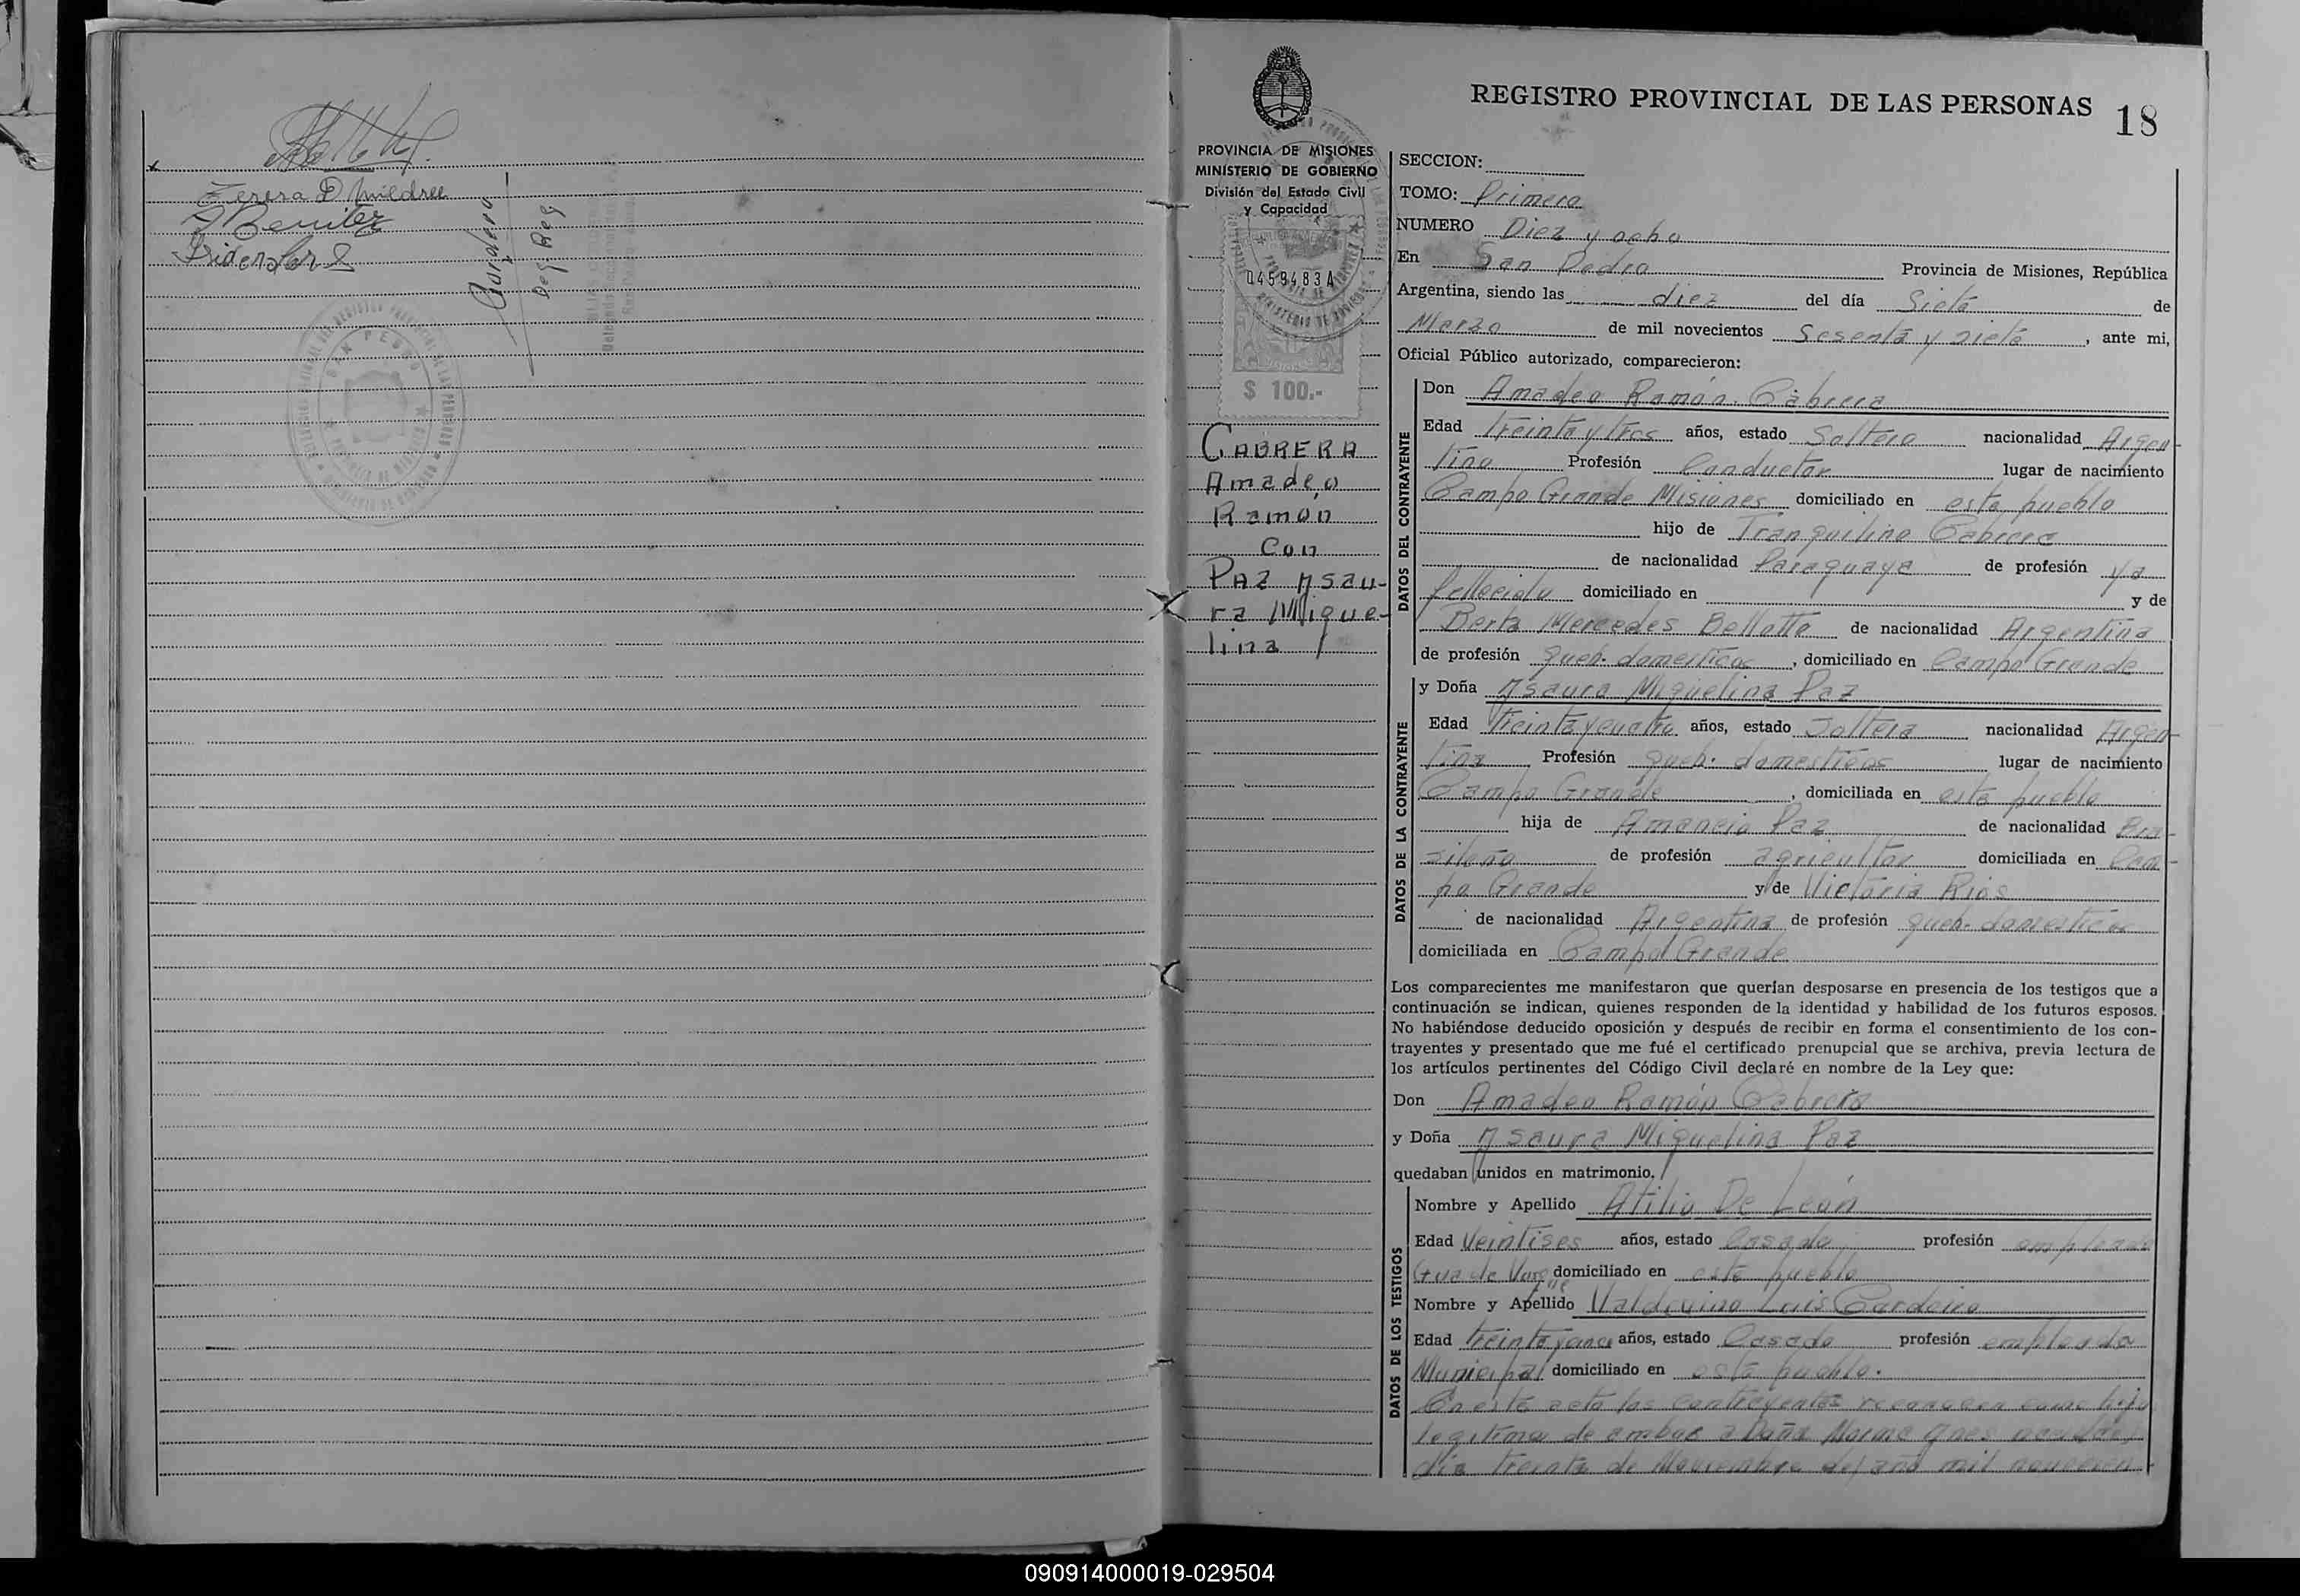 Teresa D
Benitez
SAN PEDRO
REGISTRO PROVINCIAL DE LAS PERSONAS 18
PROVINCIA DE MISIONES
MINISTERIO DE GOBIERNO
División del Estado Civil
y Capacidad
0459483A
$ 100.-
CABRERA
Amadeo
Ramón
Con
PAZ Ysau-
ra Migue-
lina
SECCION:
TOMO: Primero
NUMERO Diez y ocho
En San Pedro Provincia de Misiones, República
Argentina, siendo las diez del día Siete de
Marzo de mil novecientos Sesenta y siete, ante mi,
Oficial Público autorizado, comparecieron:
DATOS DEL CONTRAYENTE
Don Amadeo Ramón Cabrera
Edad treinta y tres años, estado Soltero nacionalidad Argen-
tino Profesión Conductor lugar de nacimiento
Campo Grande Misiones domiciliado en este pueblo
hijo de Tranquilino Cabrera
de nacionalidad Paraguaya de profesión ya
fallecido domiciliado en y de
Berta Mercedes Bellotto de nacionalidad Argentina
de profesión queh. domesticos, domiciliado en Campo Grande
DATOS DE LA CONTRAYENTE
y Doña Ysaura Miguelina Paz
Edad treinta y cuatro años, estado Soltera nacionalidad Argen-
tina Profesión queh. domesticos lugar de nacimiento
Campo Grande, domiciliada en este pueblo
hija de Amancio Paz de nacionalidad Bra-
sileña de profesión agricultor domiciliada en Cam-
po Grande y de Victoria Rios
de nacionalidad Argentina de profesión queh. domesticos
domiciliada en Campo Grande
Los comparecientes me manifestaron que querían desposarse en presencia de los testigos que a
continuación se indican, quienes responden de la identidad y habilidad de los futuros esposos.
No habiéndose deducido oposición y después de recibir en forma el consentimiento de los con-
trayentes y presentado que me fué el certificado prenupcial que se archiva, previa lectura de
los artículos pertinentes del Código Civil declaré en nombre de la Ley que:
Don Amadeo Ramón Cabrera
y Doña Ysaura Miguelina Paz
quedaban unidos en matrimonio.
DATOS DE LOS TESTIGOS
Nombre y Apellido Atilio De León
Edad Veintises años, estado Casado profesión empleado
domiciliado en este pueblo
Nombre y Apellido Valdivino Luis Cardeiro
Edad años, estado Casado profesión empleado
Municipal domiciliado en este pueblo.
En este acto los contrayentes reconocen como hija
legitima de ambos a Doña Norma
día treinta de Noviembre del año mil novecien
090914000019-029504